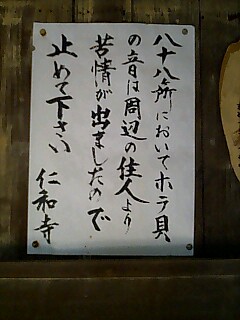 八十八所においてホテ貝
の音は周辺の住人より
苦情が出ましたので
止めて下さい 仁和寺